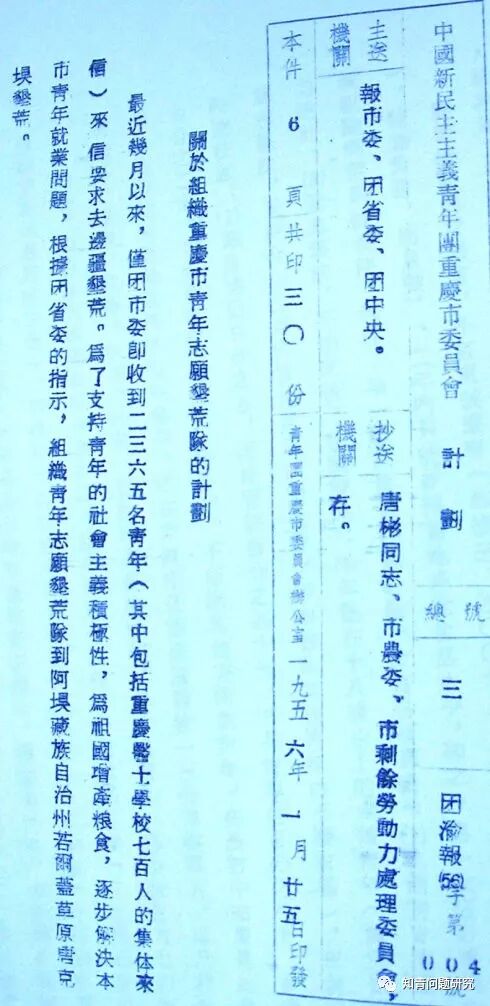 中國新民主主義青年團重慶市委員會 計劃
總號 三 团渝報(56)字第004號
主送機關 報市委、团省委、团中央。
抄送機關 唐彬同志、市農委、市剩餘勞動力處理委員會,存。
本件6頁共印三〇份
青年團重慶市委員會辦公室一九五六年一月廿五日印發
關於組織重慶市青年志願墾荒隊的計劃
最近幾月以來,僅团市委即收到二三六五名青年(其中包括重慶醫士學校七百人的集体來
信)來信要求去邊疆墾荒。爲了支持青年的社會主義積極性,爲祖國增產粮食,逐步解決本
市青年就業問題,根據团省委的指示,組織青年志願墾荒隊到阿垻藏族自治州若爾蓋草原唐克
垻墾荒。
知青问题研究